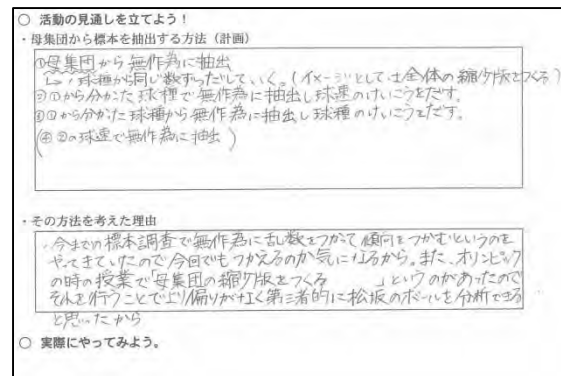 ○ 活動の見通しを立てよう！
・母集団から標本を抽出する方法（計画）
①母集団から無作為に抽出
↳球種から同じ数ずつだしていく。(イメージとしては全体の縮少版をつくる)
②①から分かった球種で無作為に抽出し球速のけいこうをだす。
③①から分かった球種から無作為に抽出し球種のけいこうをだす。
(④②の球速で無作為に抽出 )
・その方法を考えた理由
・今までの標本調査で無作為に乱数をつかって傾向をつかむというのを
やってきていたので今回でもつかえるのか気になるから。また、オリンピック
の時の授業で「母集団の縮少版をつくる 」というのがあったので
それを行うことでより偏りがなく第三者的に松坂のボールを分析できる
と思ったから
○ 実際にやってみよう。